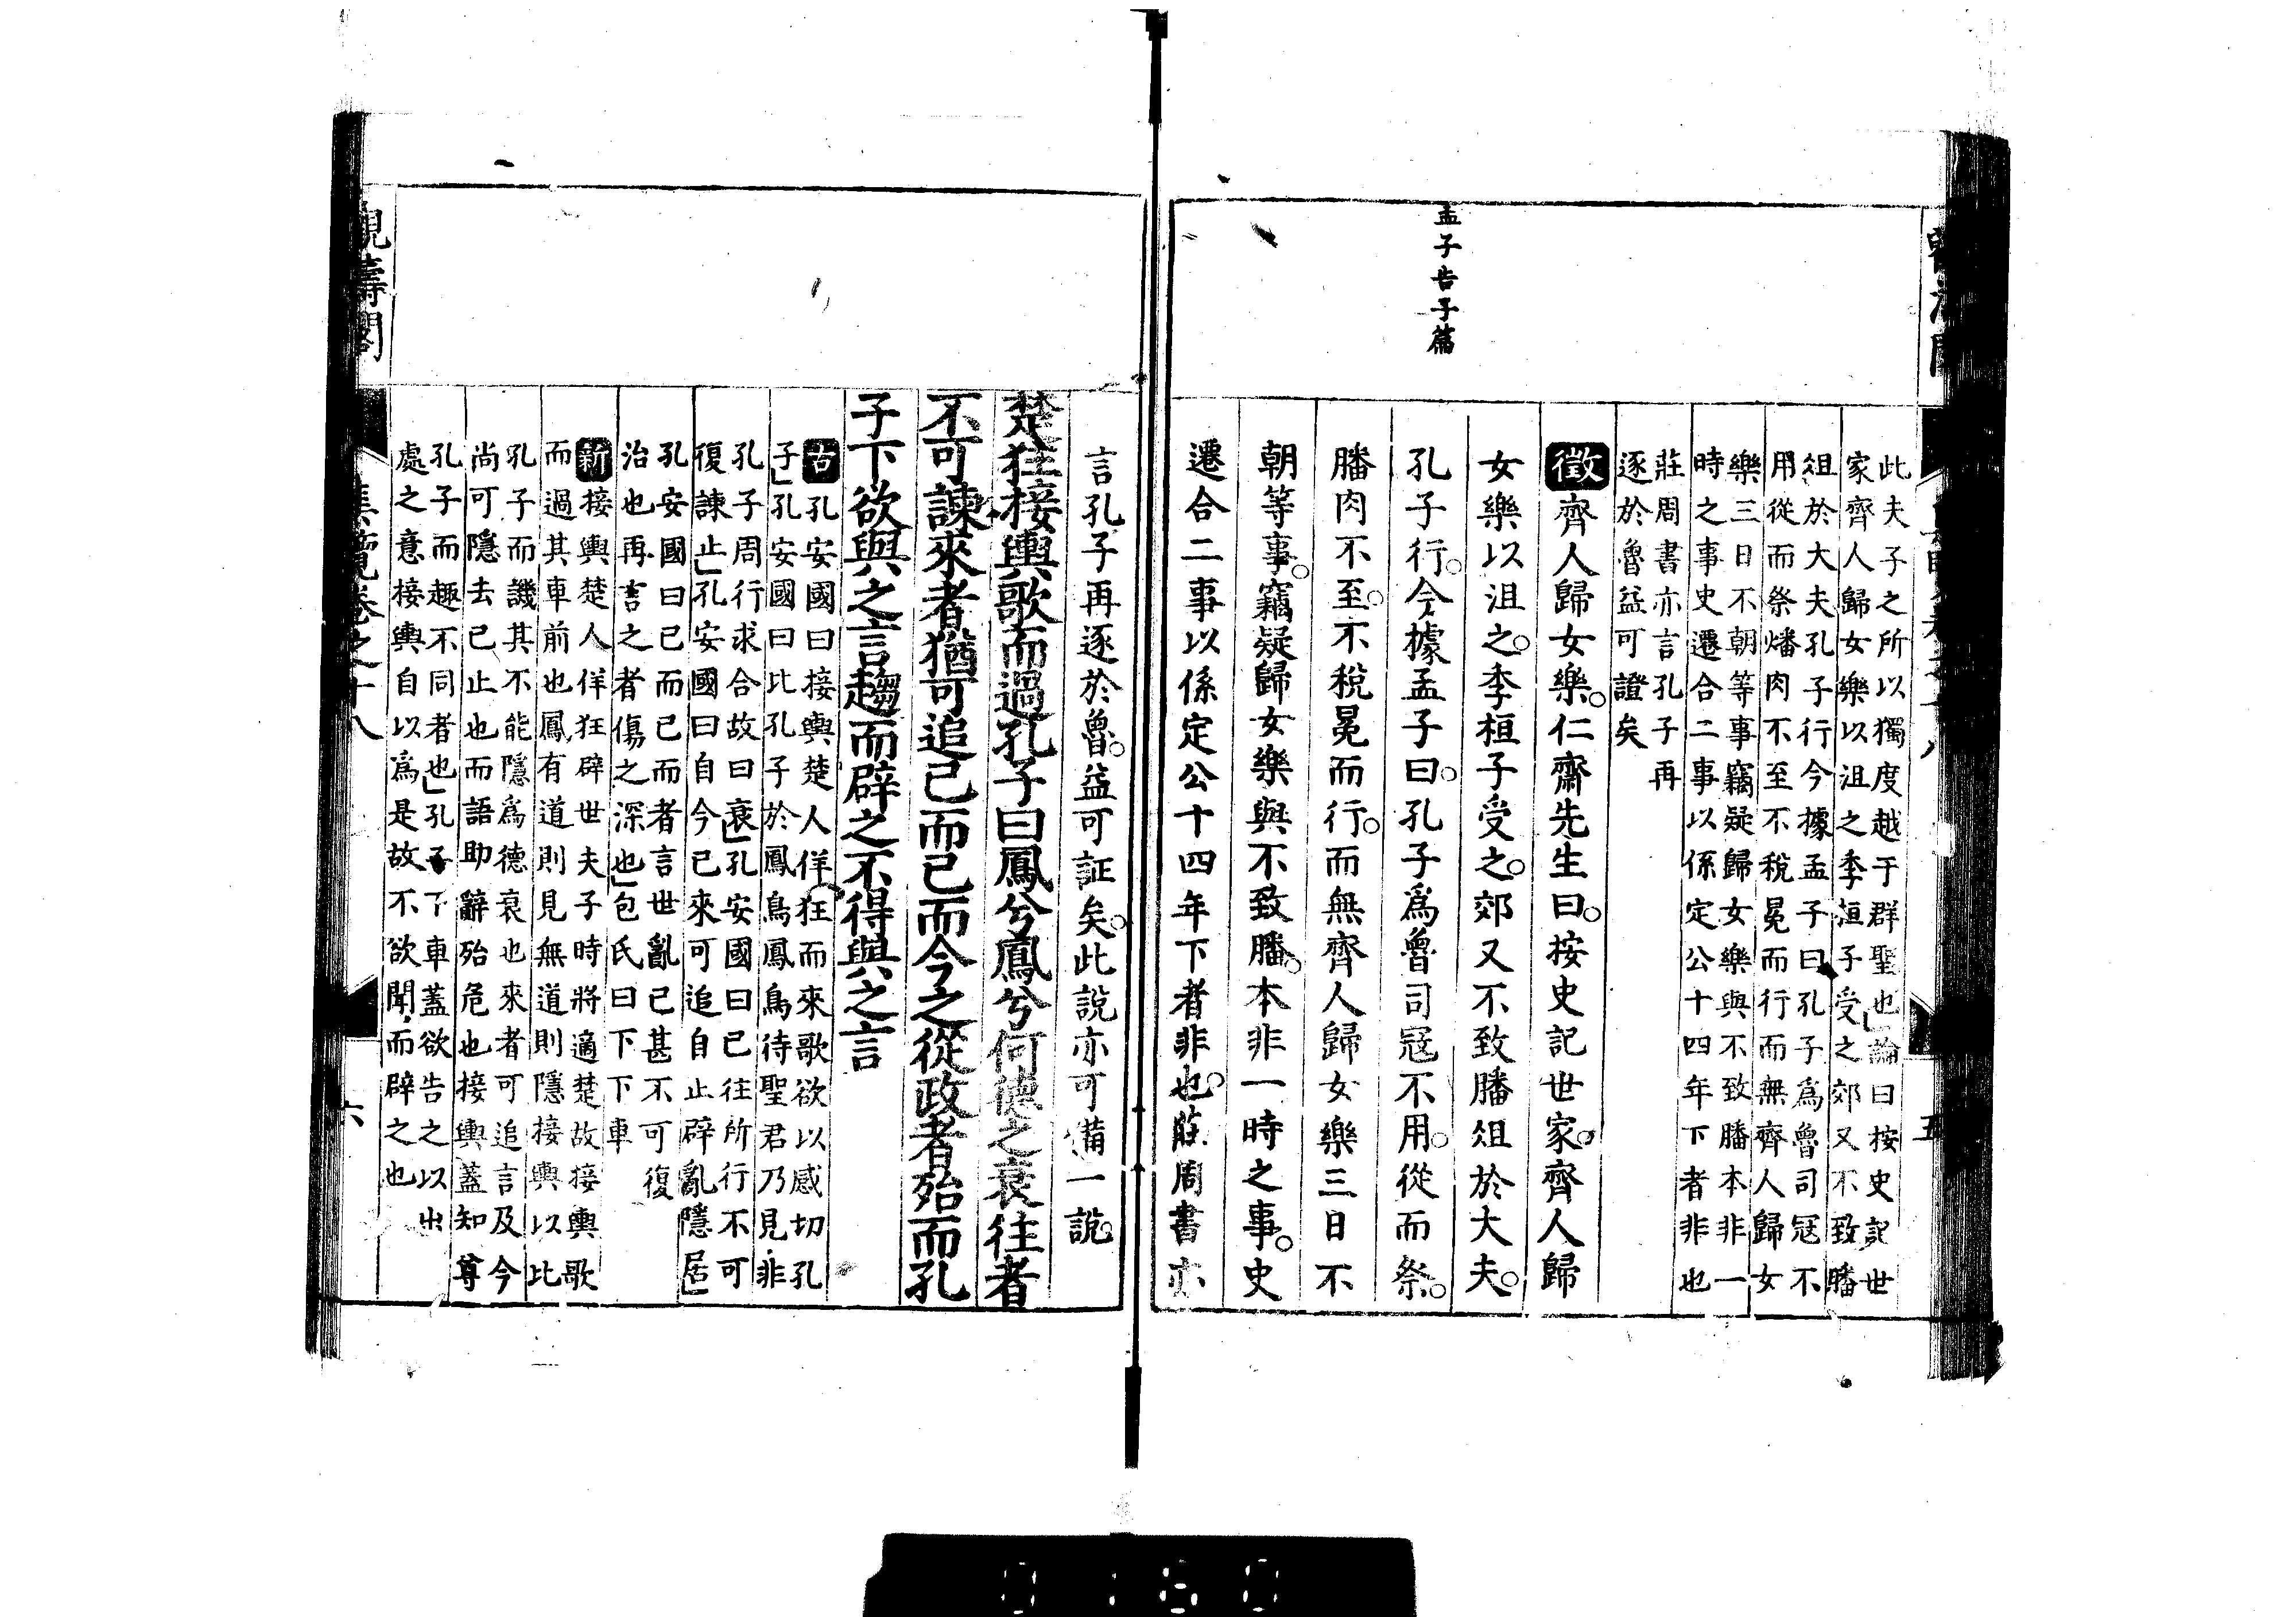 孟子告子篇
此夫子之所以獨度越于群聖也論曰按史記世
家齊人歸女樂以沮之季桓子受之郊又不致膰
俎於大夫孔子行今據孟子曰孔子爲魯司冦不
用從而祭燔肉不至不稅冕而行而無齊人歸女
樂三日不朝等事竊疑歸女樂與不致膰本非一
時之事史遷合二事以係定公十四年下者非也
莊周書亦言孔子再
逐於魯益可證矣
徵齊人歸女樂仁齋先生曰按史記世家齊人歸
女樂以沮之季桓子受之郊又不致膰俎於大夫
孔子行今據孟子曰孔子爲魯司冦不用從而祭
膰肉不至不稅冕而行而無齊人歸女樂三日不
朝等事竊疑歸女樂與不致膰本非一時之事史
遷合二事以係定公十四年下者非也莊周書亦
言孔子再逐於魯益可証矣此説亦可備一說
楚狂接輿歌而過孔子曰鳳兮鳳兮何德之衰往者
不可諫來者猶可追已而已而今之從政者殆而孔
子下欲與之言趨而辟之不得與之言
古孔安國曰接輿楚人佯狂而來歌欲以感切孔
子孔安國曰比孔子於鳳鳥鳳鳥待聖君乃見非
孔子周行求合故曰衰孔安國曰已往所行不可
復諫止孔安國曰自今已來可追自止辟亂隱居
孔安國曰已而已而者言世亂已甚不可復
治也再言之者傷之深也包氏曰下下車
新接輿楚人佯狂辟世夫子時將適楚故接輿歌
而過其車前也鳳有道則見無道則隱接輿以比
孔子而譏其不能隱爲德衰也來者可追言及今
尚可隱去已止也而語助辭殆危也接輿蓋知尊
孔子而趣不同者也孔子下車蓋欲告之以出
處之意接輿自以爲是故不欲聞而辟之也
觀濤閣
集覽卷之十八
六
五
0160